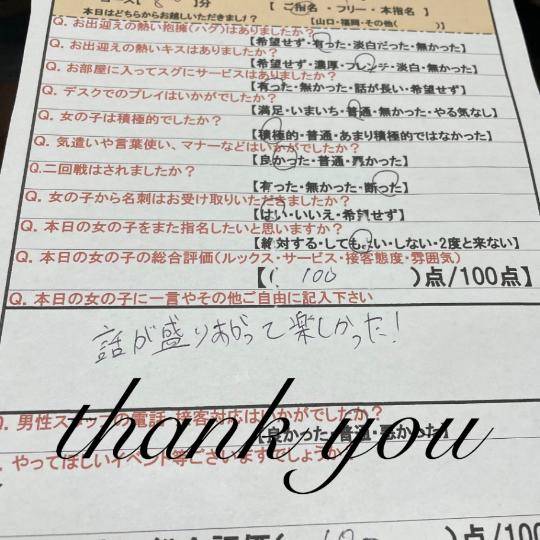 】分
【 ご指名 ・ フリー ・ 本指名
本日はどちらからお越しいただきました？
【山口・福岡・その他( )】
Q. お出迎えの熱い抱擁(ハグ)はありましたか？
【希望せず・有った・淡白だった・無かった】
Q. お出迎えの熱いキスはありましたか？
【希望せず・濃厚・フレンチ・淡白・無かった】
Q. お部屋に入ってスグにサービスはありましたか？
【有った・無かった・話が長い・希望せず】
Q. デスクでのプレイはいかがでしたか？
【満足・いまいち・普通・無かった・やる気なし】
Q. 女の子は積極的でしたか？
【積極的・普通・あまり積極的ではなかった】
Q. 気遣いや言葉使い、マナーなどはいかがでしたか？
【良かった・普通・悪かった】
Q.二回戦はされましたか？
【有った・無かった・断った】
Q. 女の子から名刺はお受け取りいただきましたか？
【はい・いいえ・希望せず】
Q. 本日の女の子をまた指名したいと思いますか？
【絶対する・してもよい・しない・2度と来ない】
Q. 本日の女の子の総合評価(ルックス・サービス・接客態度・雰囲気)
【( 100 )点/100点】
Q. 本日の女の子に一言やその他ご自由に記入下さい
話が盛りあがって楽しかった!
thank you
Q. 男性スタッフの電話・接客対応はいかがでしたか？
【良かった・普通・悪かった】
. やってほしいイベント等ございますでしょうか
)点/100